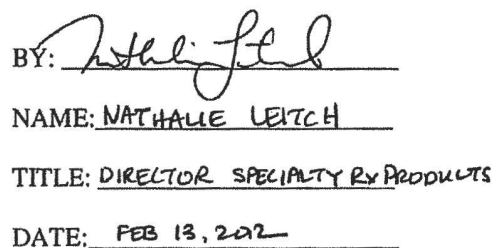 BY: Nathalie Leitch
NAME: NATHALIE LEITCH
TITLE: DIRECTOR SPECIALTY Rx PRODUCTS
DATE: FEB 13, 2012